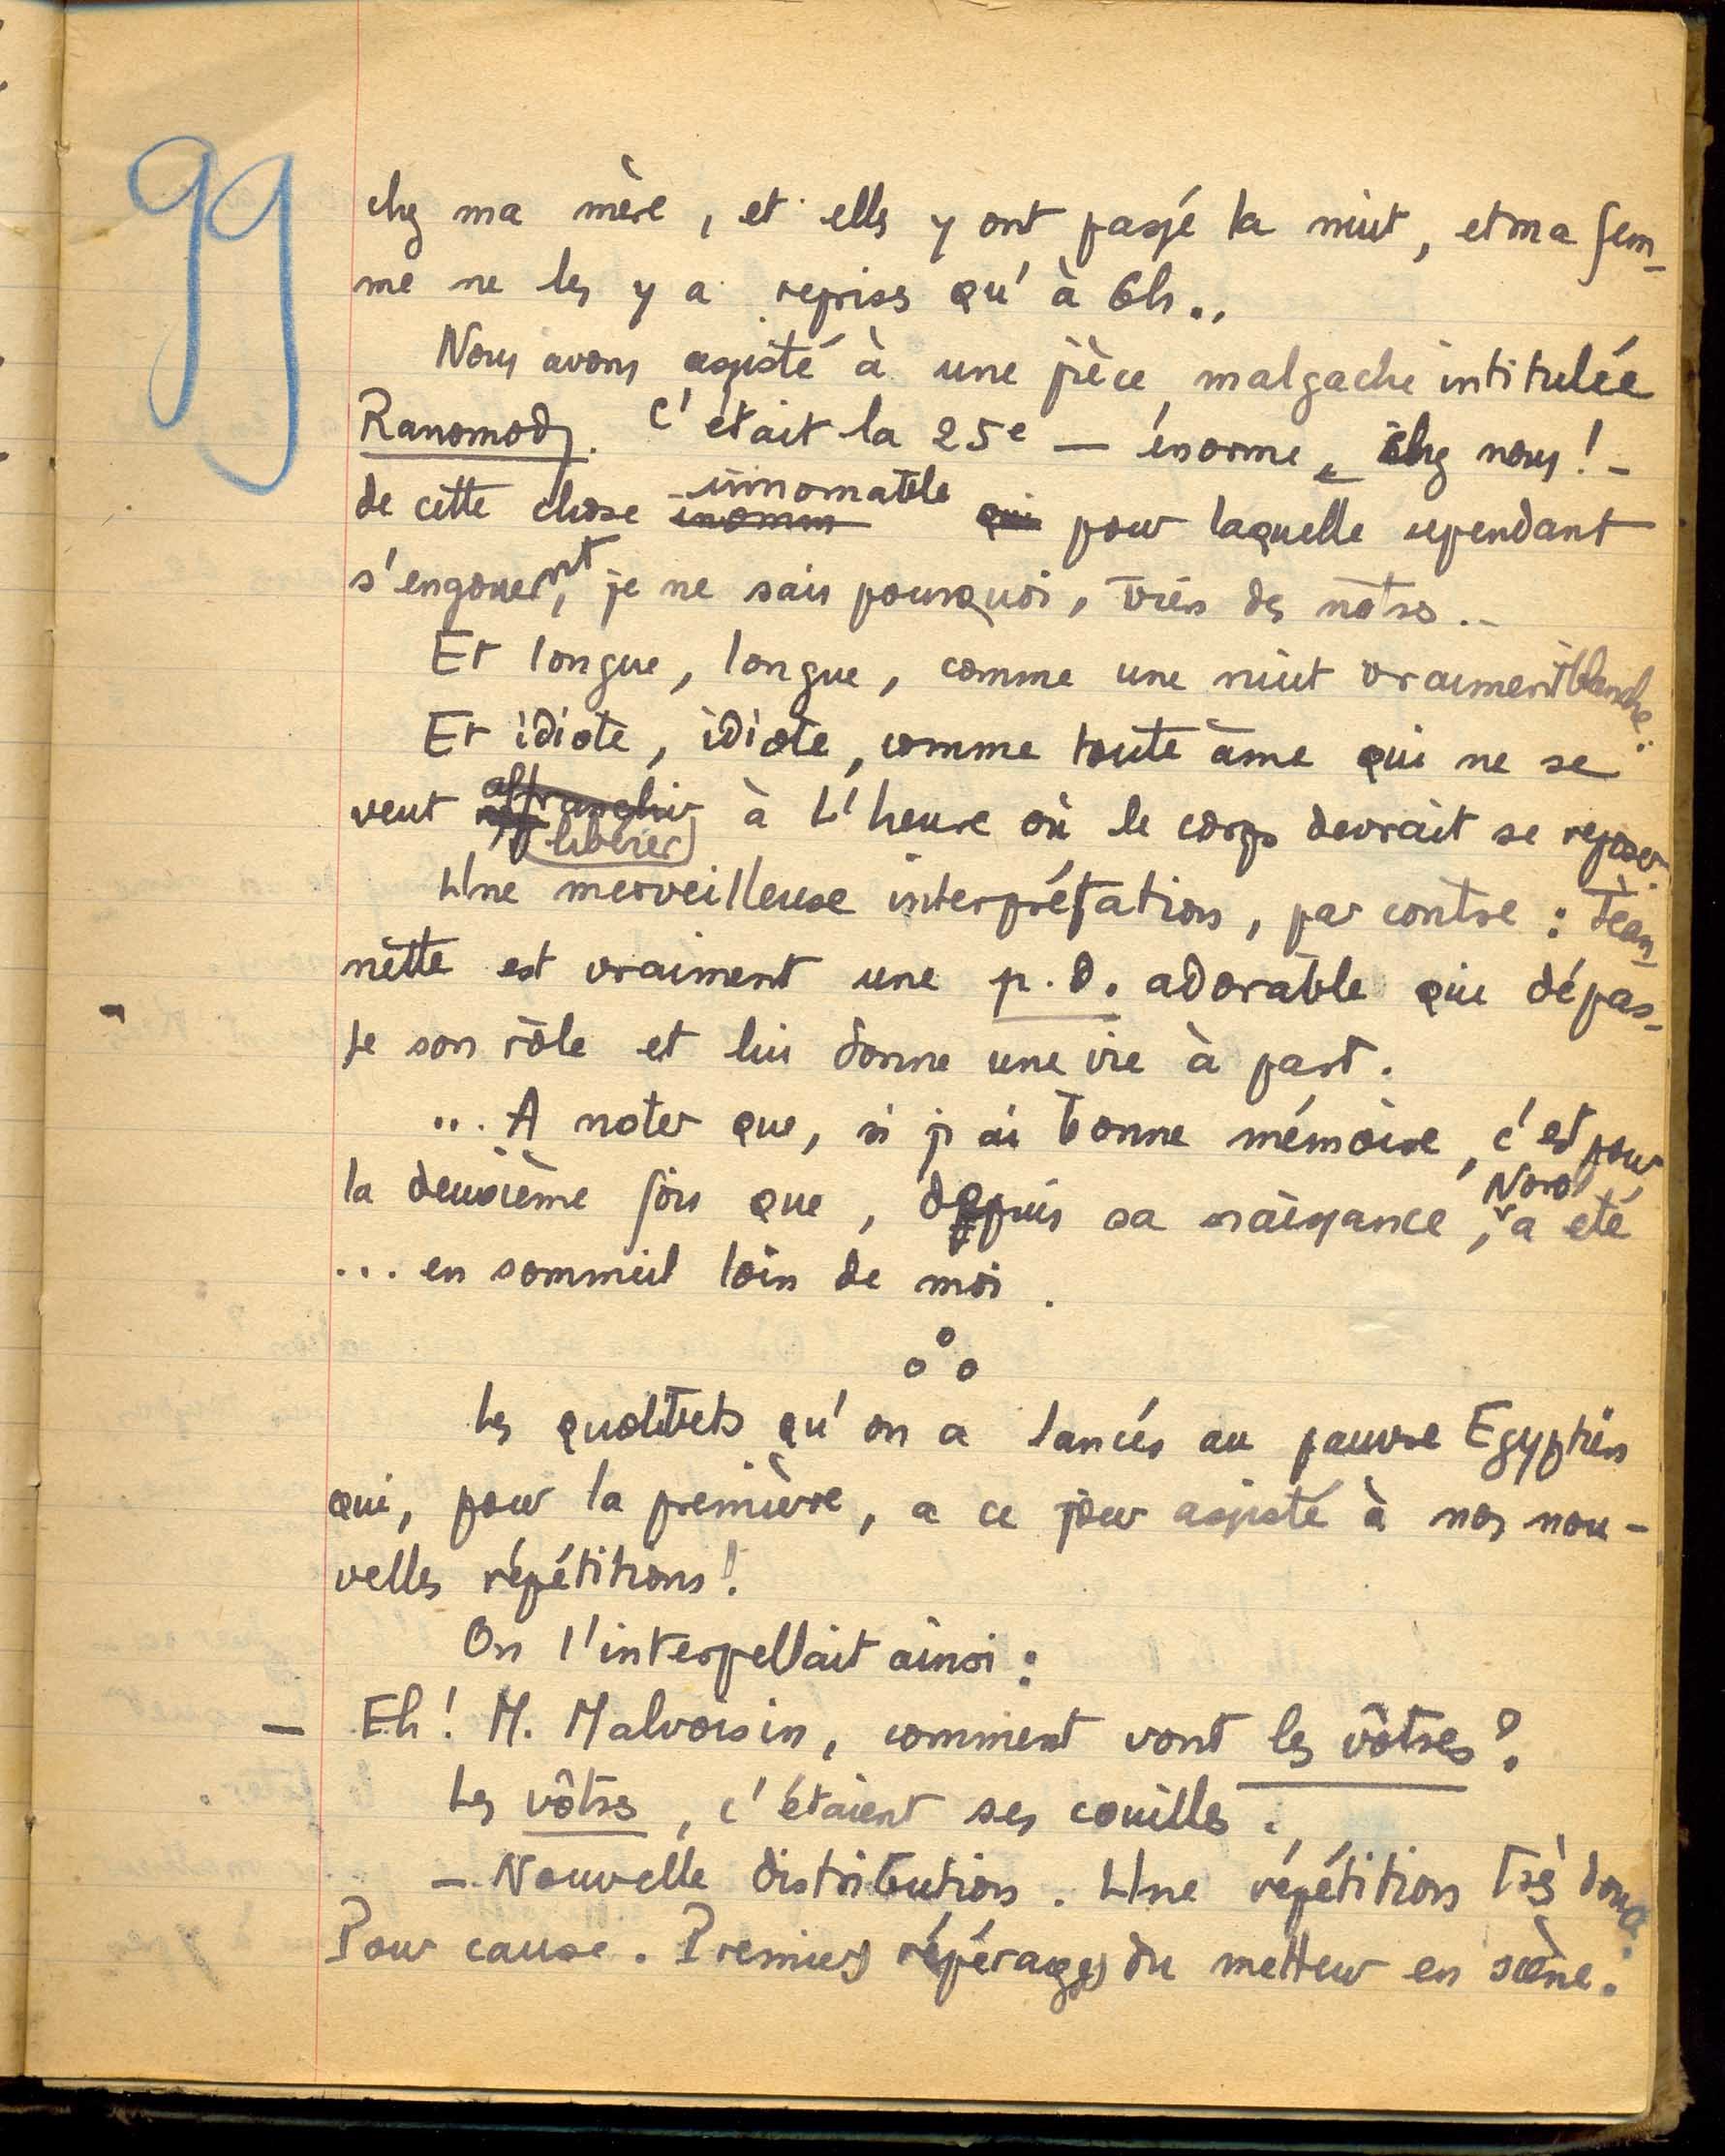 99
chez ma mère, et elles y ont passé la nuit, et ma fem-
me ne les y a reprises qu'à 6h..
Nous avons assisté à une pièce malgache intitulée
Ranomody. C'était la 25e — énorme, chez nous! -
de cette chose inomm innomable qui pour laquelle cependant
s'engouent, je ne sais pourquoi, bien des nôtres..
Et longue, longue, comme une nuit vraiment blanche.
Et idiote, idiote, comme toute âme qui ne se
veut affranchir libérer à l'heure où le corps devrait se reposer.
Une merveilleuse interprétation, par contre : Jean-
nette est vraiment une p.d. adorable qui dépas-
se son rôle et lui donne une vie à part.
... A noter que, si j'ai bonne mémoire, c'est pour
la deuxième fois que, depuis sa naissance, Noro a été
... en sommeil loin de moi.
Les quolibets qu'on a lancés au pauvre Egyptien
qui, pour la première, a ce jour assisté à nos nou-
velles répétitions!
On l'interpellait ainsi :
— Eh! M. Malvoisin, comment vont les vôtres?
Les vôtres, c'étaient ses couilles.
— Nouvelle distribution. Une répétition très douce.
Pour cause. Premiers répérages du metteur en scène.